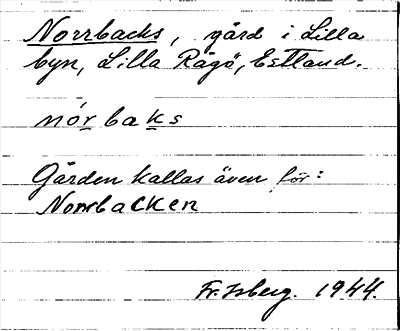 Norrbacks, gård i Lilla
byn, Lilla Rågö, Estland.
nórbaks
Gården kallas även för:
Norrbacken
Fr. Isberg. 1944.